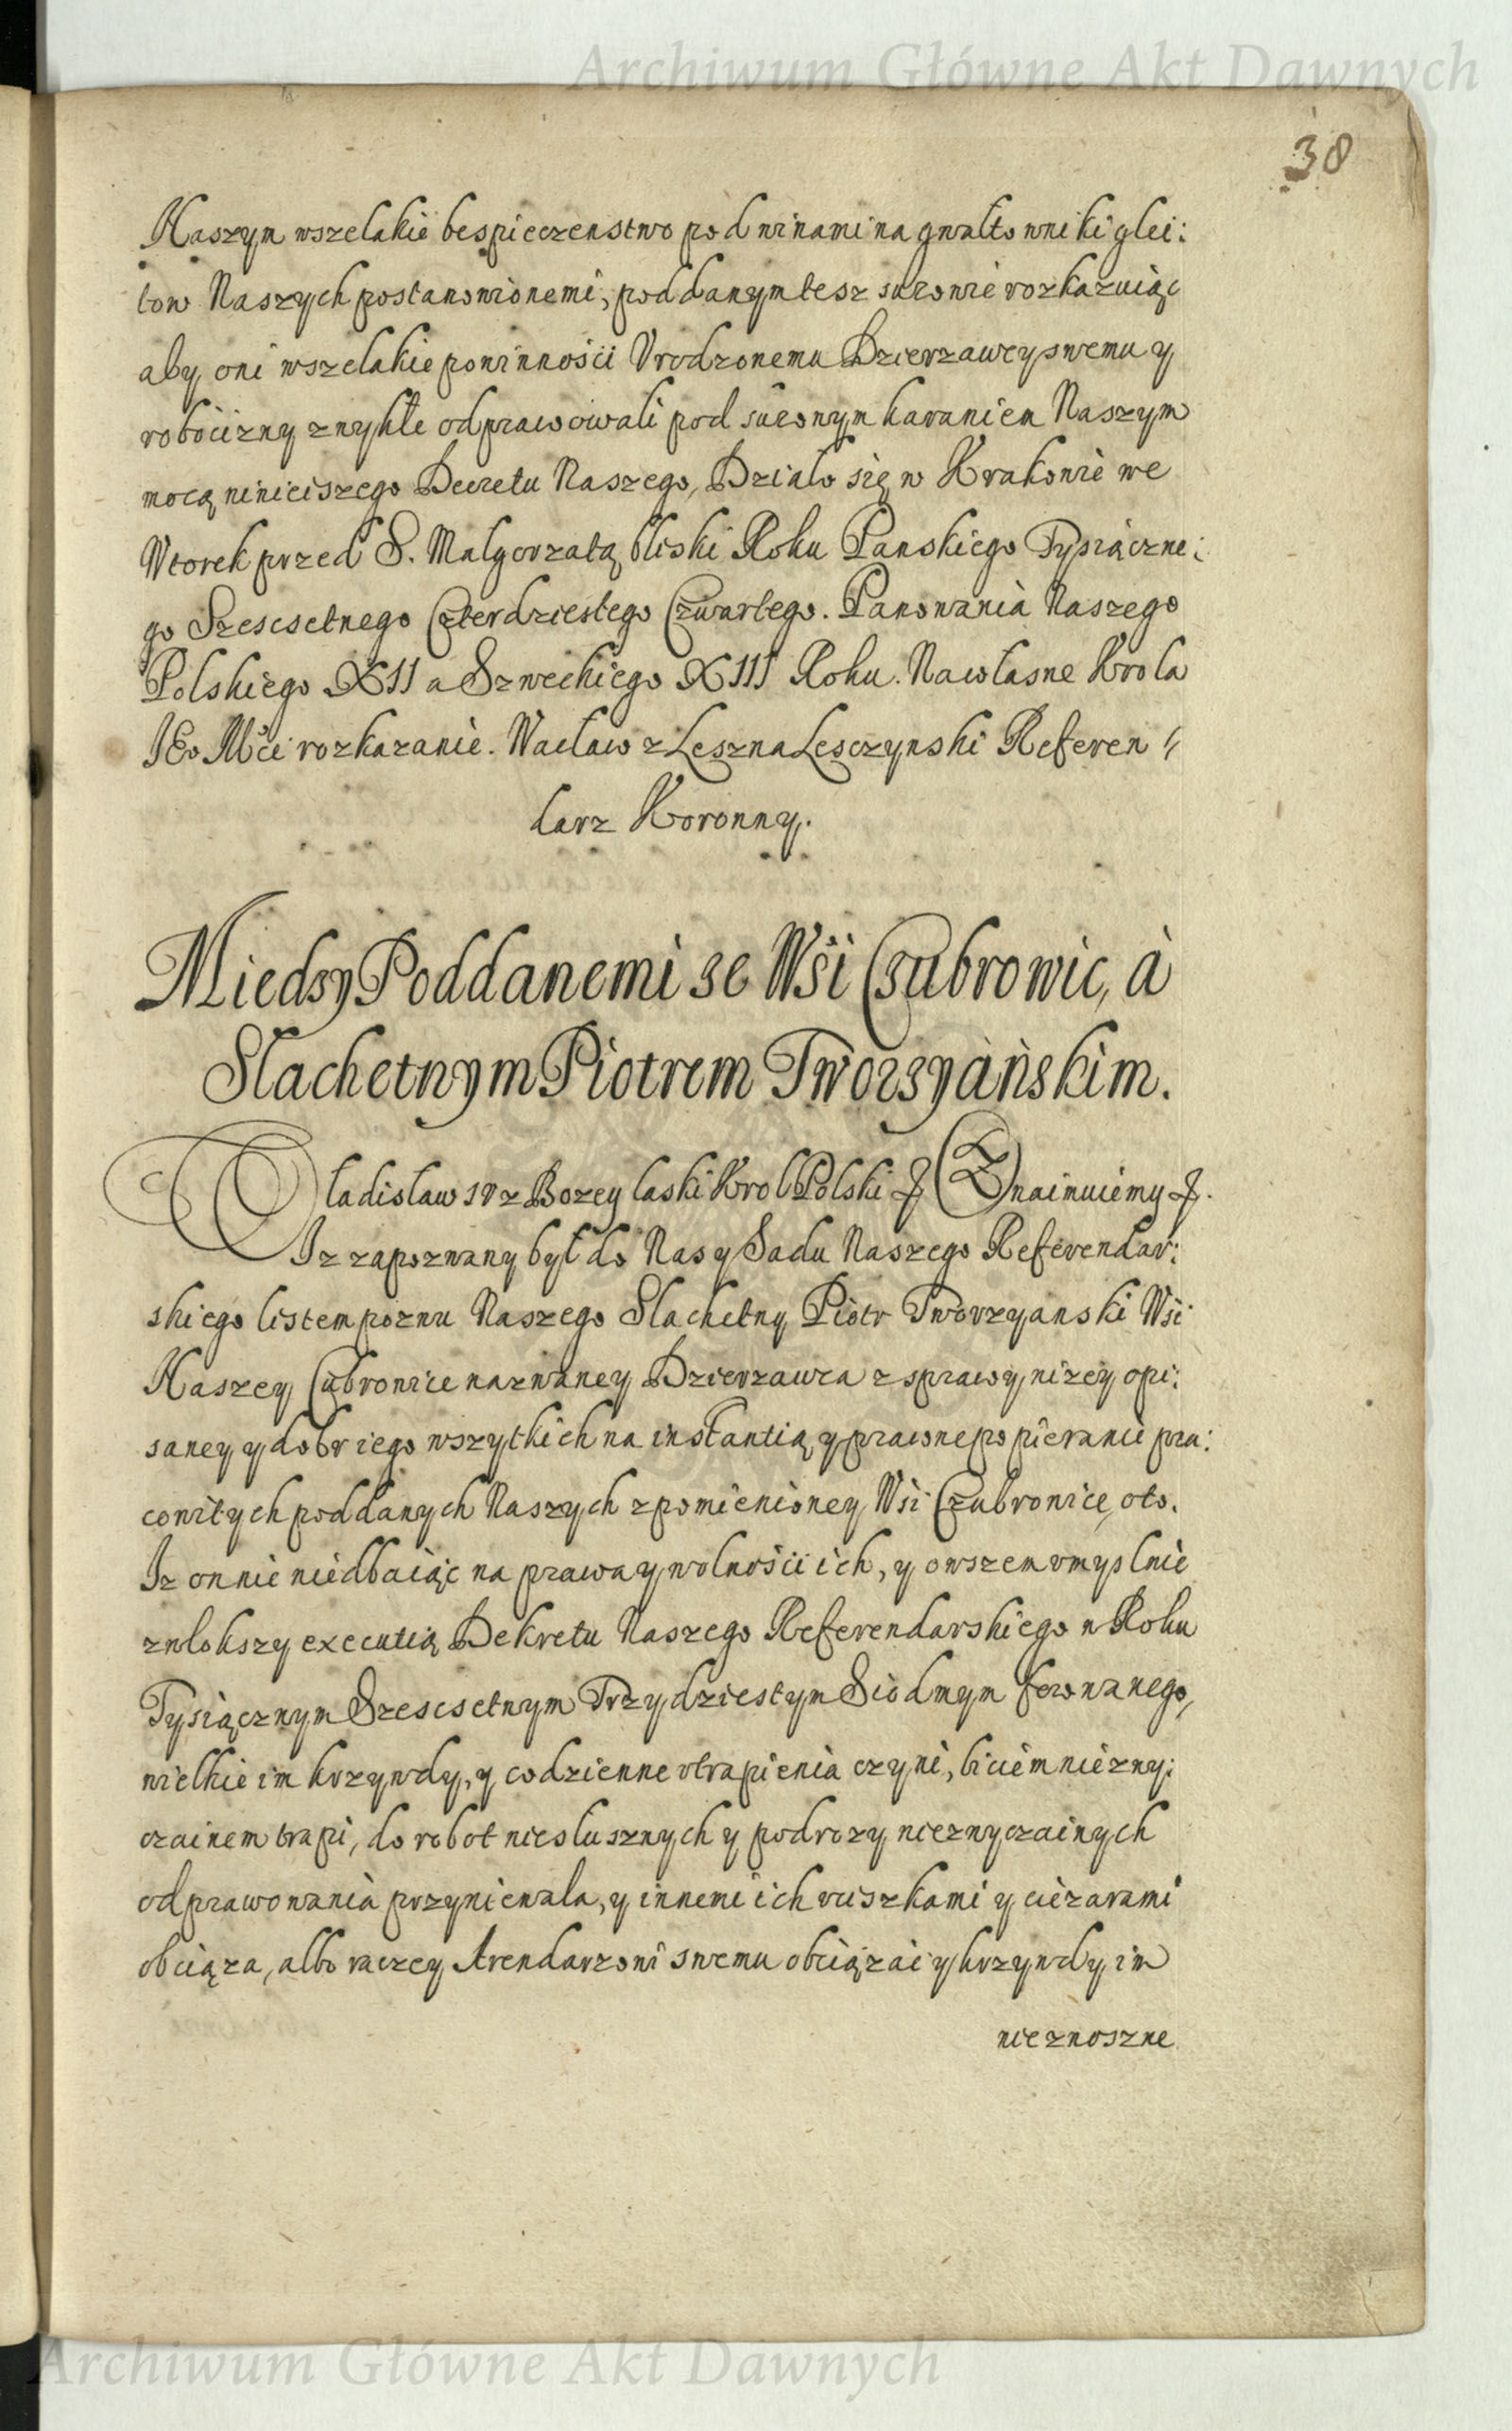 Archiwum Główne Akt Dawnych
38
Naszym wszelakie bespieczenstwo pod winami na gwałtowniki glei:
tow Naszych postanowionemi, poddanym tesz surowie rozkazuiąc
aby oni wszelakie powinnosci Vrodzonemu Dzierzawcy swemu y
robocizny zwykłe odprawowali pod surowym karaniem Naszym
mocą ninieiszego Decretu Naszego, Działo się w Krakowie we
Wtorek przed S. Małgorzatą bliski Roku Panskiego Tysiączne:
go Szescsetnego Czterdziestego Czwartego. Panowania Naszego
Polskiego XII a Szweckiego XIII Roku. Na własne Krola
JEo Mci rozkazanie. Wacław z Leszna Lesczynski Referen //
darz Koronny.
Miedzy Poddanemi ze Wsi Czubrowic, à
Slachetnym Piotrem Tworzyańskim.
Wladislaw IV z Bozey laski Krol Polski &. Znaimuiemy &.
Iz zapozwany był do Nas y Sadu Naszego Referendar:
skiego listem pozwu Naszego Slachetny Piotr Tworzyanski Wsi
Naszey Cubrowice nazwaney Dzierzawca z sprawy nizey opi:
saney y dobr iego wszytkich na instantią y prawne popieranie pra:
cowitych poddanych Naszych z pomienioney Wsi Czubrowice, oto.
Iz on nie niedbaiąc na prawa y wolnosci ich, y owszem vmyslnie
zwlokszy executią Dekretu Naszego Referendarskiego w Roku
Tysiącznym Szescsetnym Trzydziestym Siodmym ferowanego,
wielkie im krzywdy, y codzienne vtrapienia czyni, biciem niezwy:
czainem trapi, do robot niesłusznych y podrozy niezwyczainych
odprawowania przyniewala, y innemi ich vciszkami y ciezarami
obciąza, albo raczey Arendarzowi swemu obciązac y krzywdy im
nieznoszne
Archiwum Główne Akt Dawnych